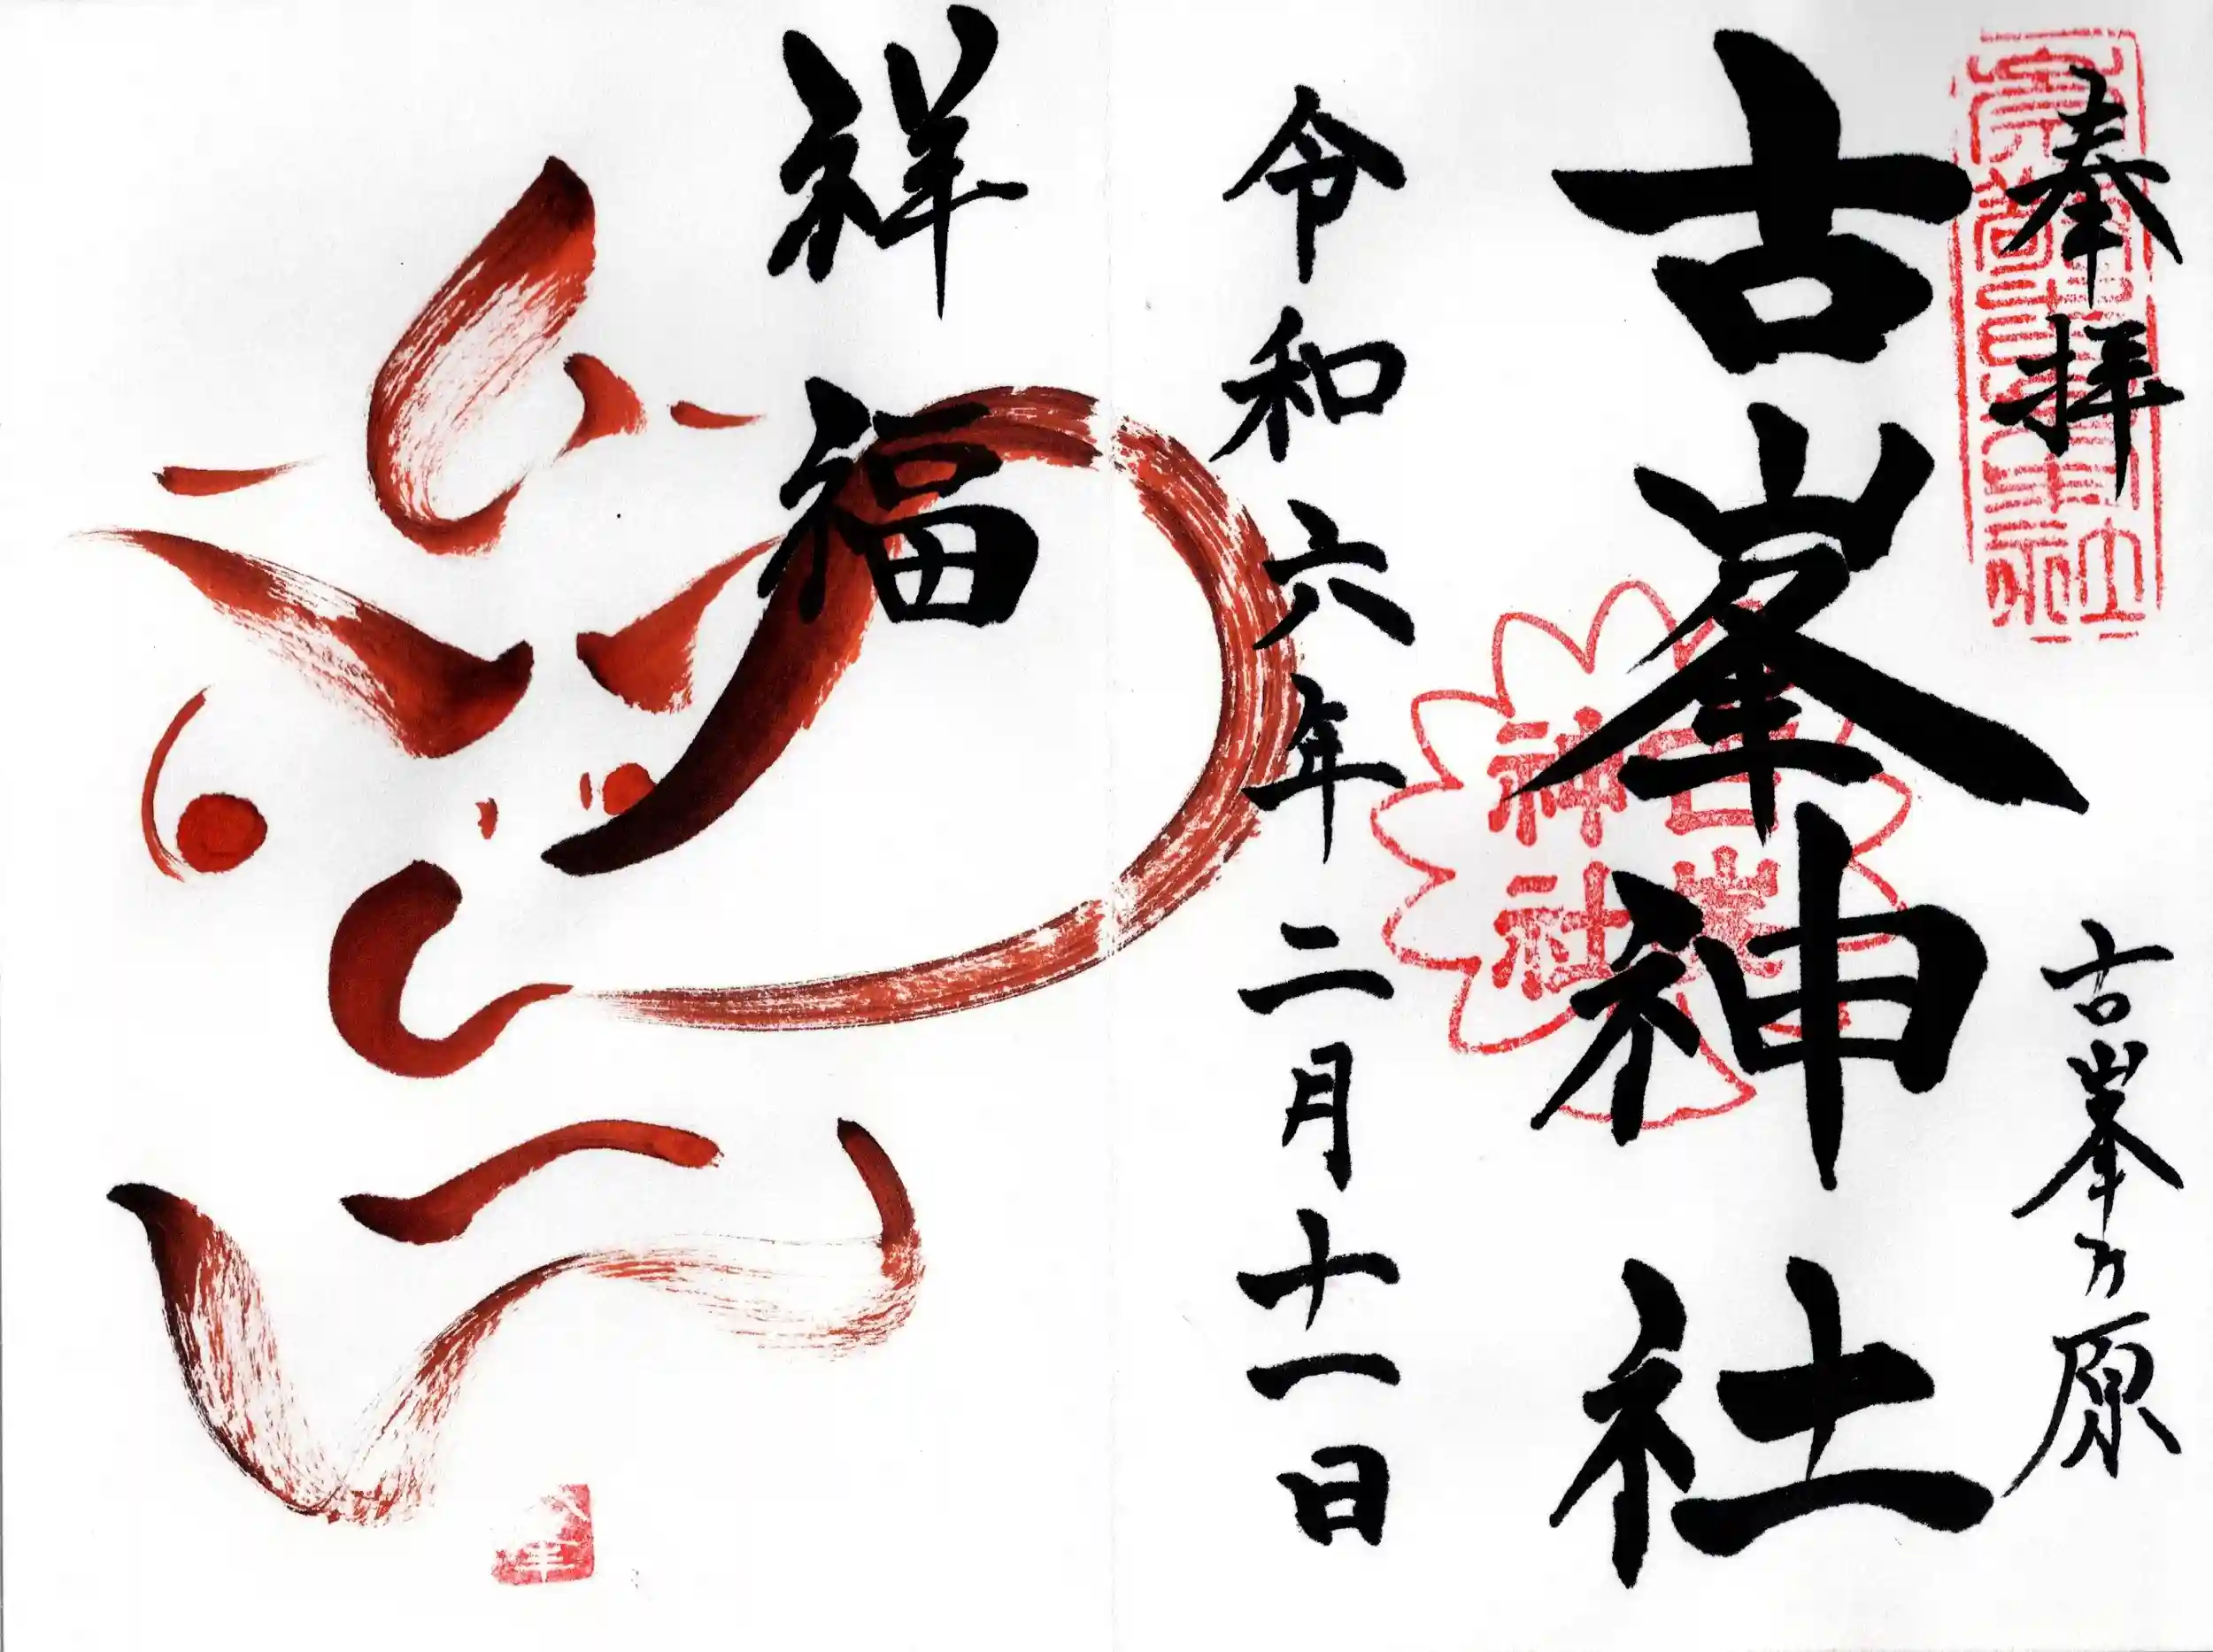 奉拝
古峯ヶ原
古峯神社
古峯
神社
令和六年二月十一日
祥福